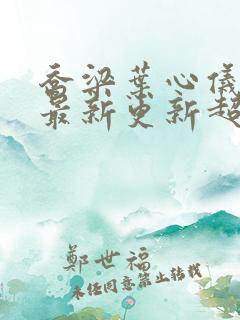 乔梁葉心儀
最新更新超
鄭世福
未经同意禁止转载